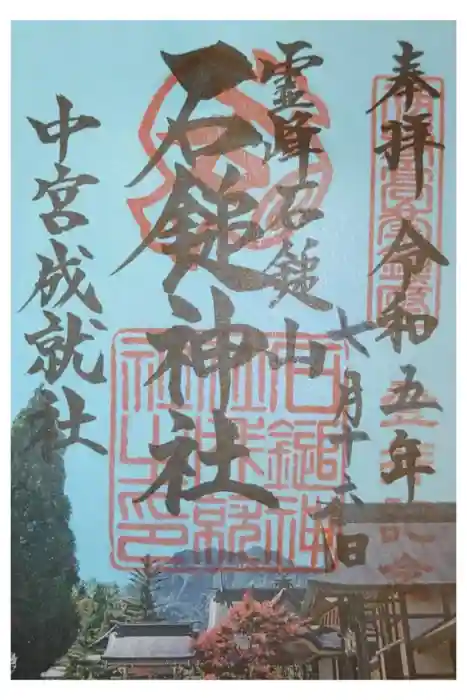 奉拝
令和五年
七月十六日
霊峰石鎚山
石鎚神社
中宮成就社